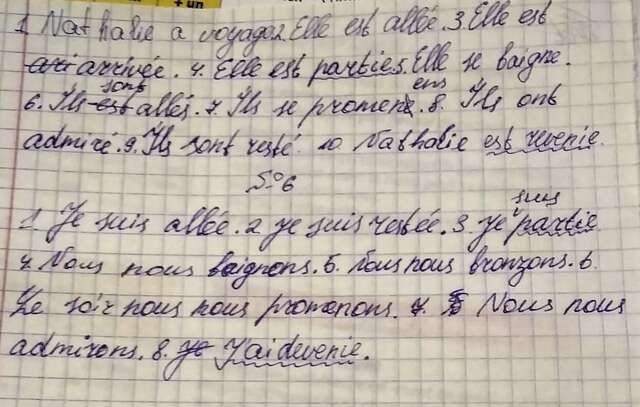 + un
1. Nathalie a voyagé 2. Elle est allée. 3. Elle est
arrivée. 4. Elle est parties. 5. Elle se baigne.
sont ens
6. Ils est allés. 7. Ils se promen. 8. Ils ont
admiré. 9. Ils sont resté. 10. Nathalie est revenie.
5.06
suis
1. Je suis allée. 2 je suis restée. 3. je partie
4. Nous nous baignons. 5. Nous nous bronzons. 6.
Le soir nous nous promenons. 7. Nous nous
admirons. 8. J'ai devenie.